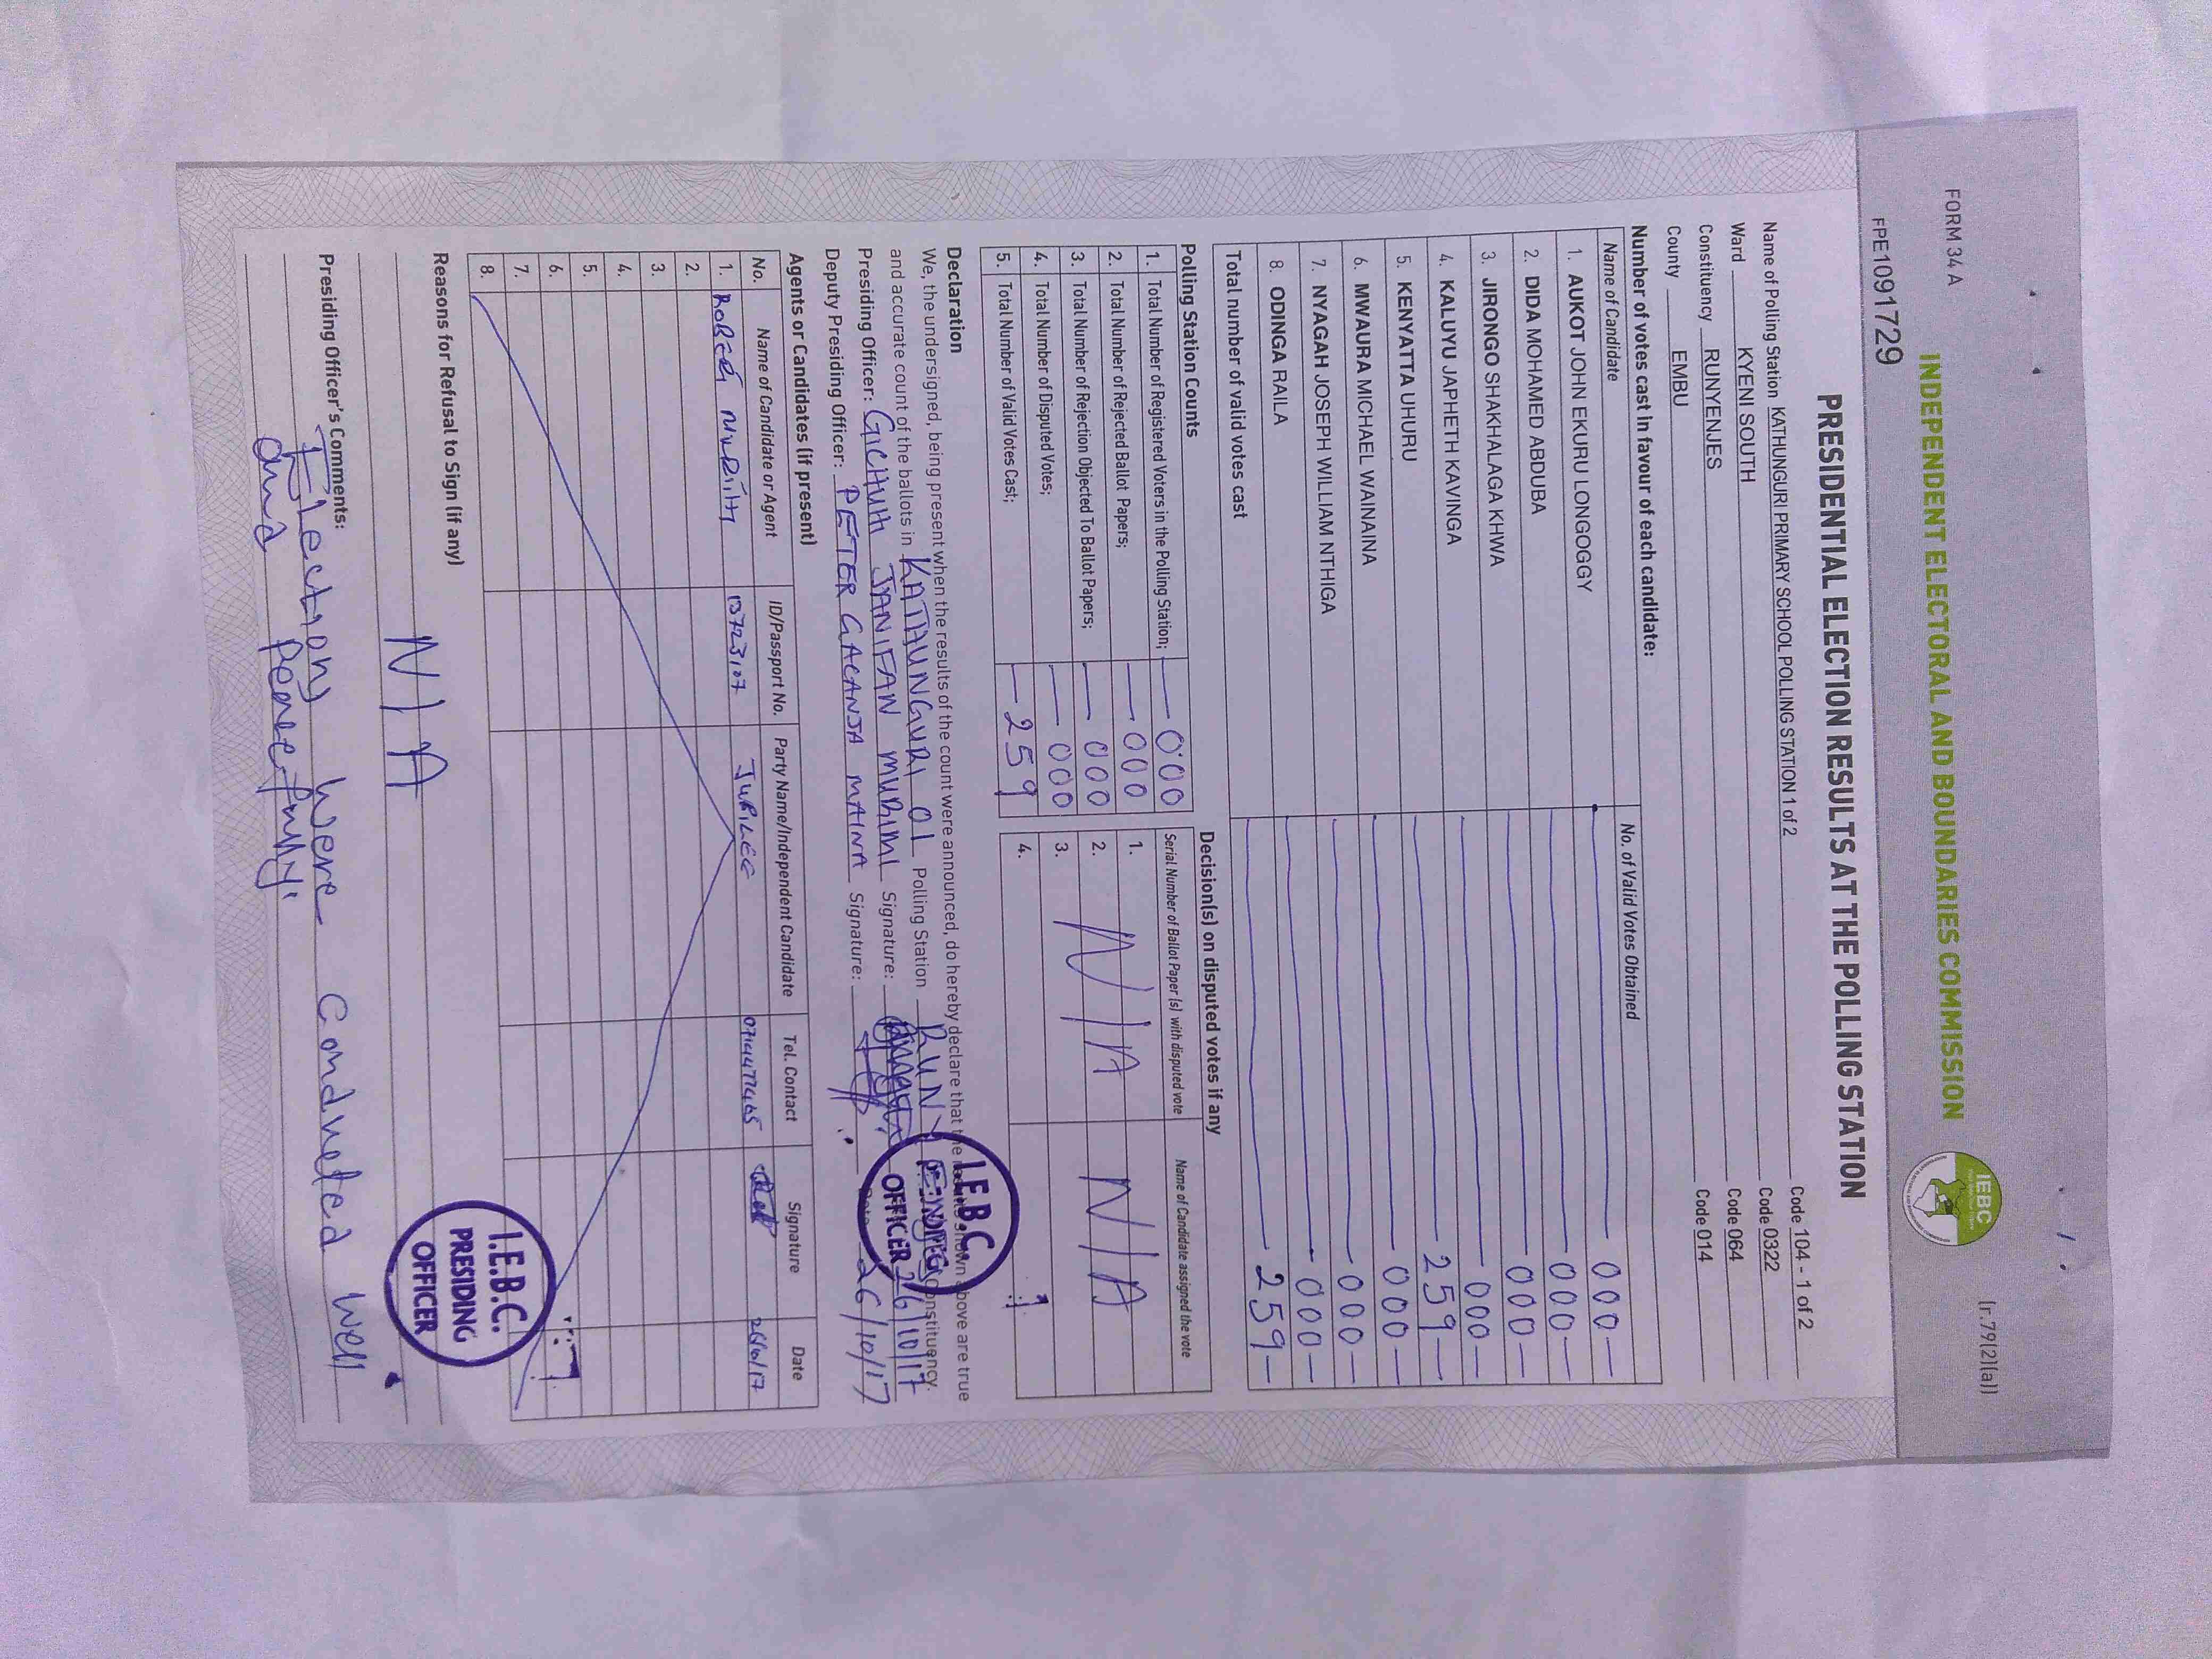 FORM 34 A
(r.79(2)(a))
INDEPENDENT ELECTORAL AND BOUNDARIES COMMISSION
IEBC
FPE1091729
PRESIDENTIAL ELECTION RESULTS AT THE POLLING STATION
Name of Polling Station KATHUNGURI PRIMARY SCHOOL POLLING STATION 1 of 2 Code 104 - 1 of 2
Ward KYENI SOUTH Code 0322
Constituency RUNYENJES Code 064
County EMBU Code 014
Number of votes cast in favour of each candidate:
Name of Candidate No. of Valid Votes Obtained
1. AUKOT JOHN EKURU LONGOGGY 000
2. DIDA MOHAMED ABDUBA 000
3. JIRONGO SHAKHALAGA KHWA 000
4. KALUYU JAPHETH KAVINGA 000
5. KENYATTA UHURU 259
6. MWAURA MICHAEL WAINAINA 000
7. NYAGAH JOSEPH WILLIAM NTHIGA 000
8. ODINGA RAILA 000
Total number of valid votes cast 259
Polling Station Counts
1. Total Number of Registered Voters in the Polling Station; 000
2. Total Number of Rejected Ballot Papers; 000
3. Total Number of Rejection Objected To Ballot Papers; 000
4. Total Number of Disputed Votes; 000
5. Total Number of Valid Votes Cast; 259
Decision(s) on disputed votes if any
Serial Number of Ballot Paper (s) with disputed vote Name of Candidate assigned the vote
1.
2. N/A N/A
3.
4.
Declaration
We, the undersigned, being present when the results of the count were announced, do hereby declare that the results shown above are true
and accurate count of the ballots in KATHUNGURI 01 Polling Station Constituency.
Presiding Officer: GICHUHI JANIFAN MURIMI Signature: 26/10/17
Deputy Presiding Officer: PETER GACANJA MAINA Signature: 26/10/17
I.E.B.C. PRESIDING OFFICER
Agents or Candidates (if present)
No. Name of Candidate or Agent ID/Passport No. Party Name/Independent Candidate Tel. Contact Signature Date
1. 13723107 JUBILEE 0714477465 26/10/17
2.
3.
4.
5.
6.
7.
8.
I.E.B.C.
PRESIDING
OFFICER
Reasons for Refusal to Sign (if any)
N/A
Presiding Officer's Comments:
Elections were conducted well
and peacefully.